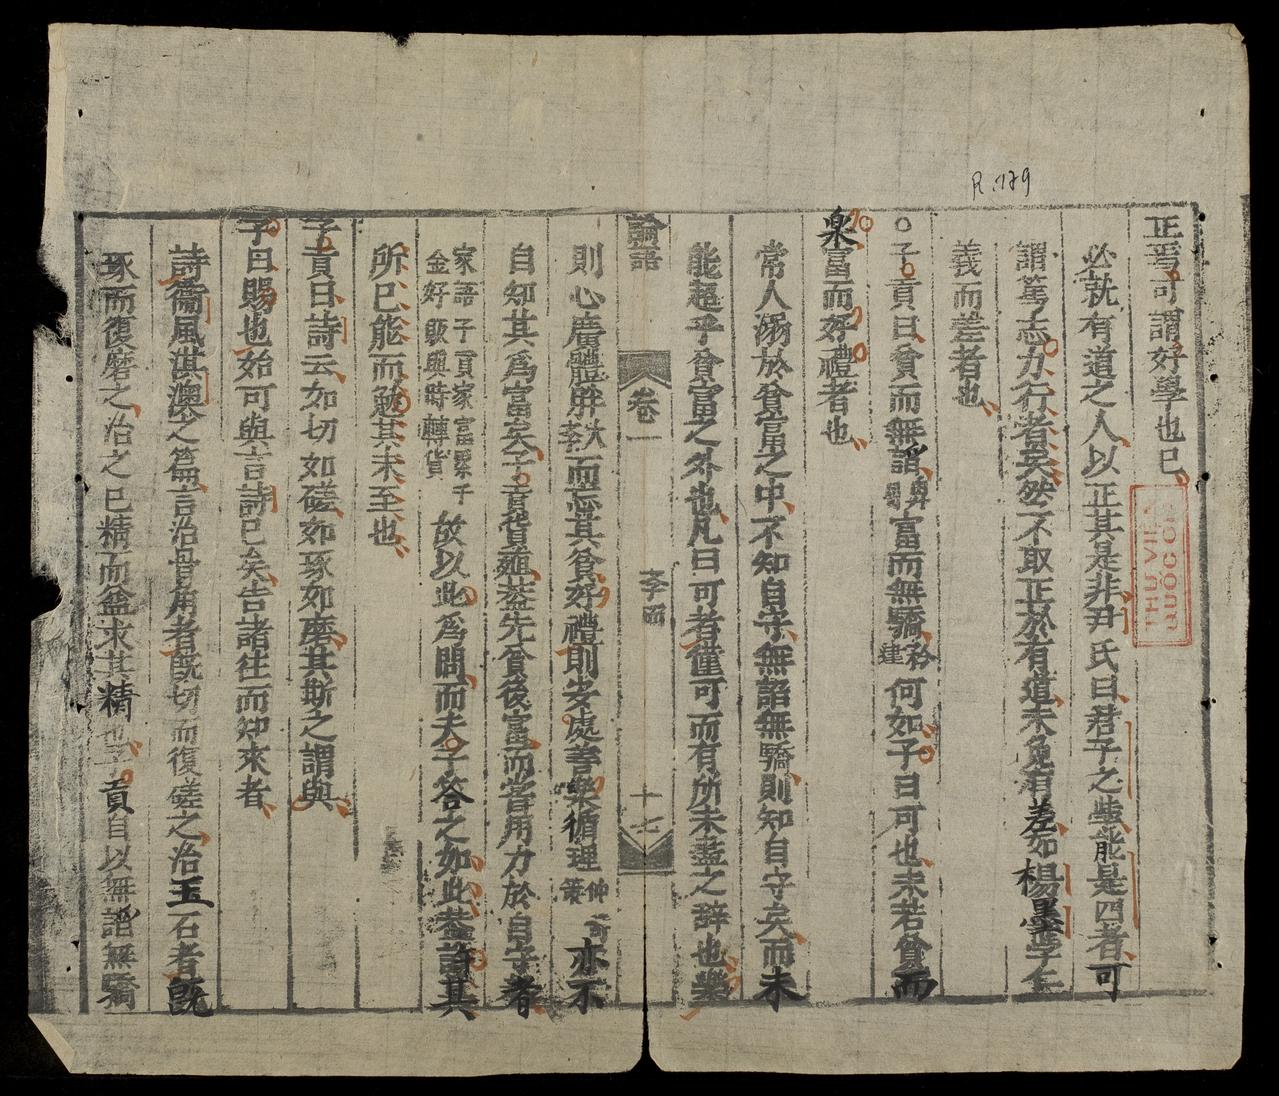 R.179
正焉可謂好學也已
必就有道之人以正其是非尹氏曰君子之学能是四者可
謂篤志力行者矣然不取正於有道未免有差如楊墨孝仁
義而差者也
○子貢曰貧而無諂富而無驕何如子曰可也未若貧而
楽富而好禮者也
常人溺於貧富之中不知自守無諂無驕則知自守矣而未
能超乎貧富之外也凡曰可者僅可而有所未盡之辞也楽
論語 卷一 十七
則心廣體胖而忘其貧好禮則安處善樂循理亦不
自知其爲富矣子貢貨殖蓋先貧後富而嘗用力於自守者
家語子貢家富累千金好販與時轉貨故以此爲問而夫子答之如此蓋許其
所已能而勉其未至也
子貢曰詩云如切如磋如琢如磨其斯之謂與
子曰賜也始可與言詩已矣告諸往而知來者
詩衞風淇澳之篇言治骨角者既切而復磋之治玉石者既
琢而復磨之治之已精而益求其精也子貢自以無諂無驕
THU VIEN
QUOC GIA